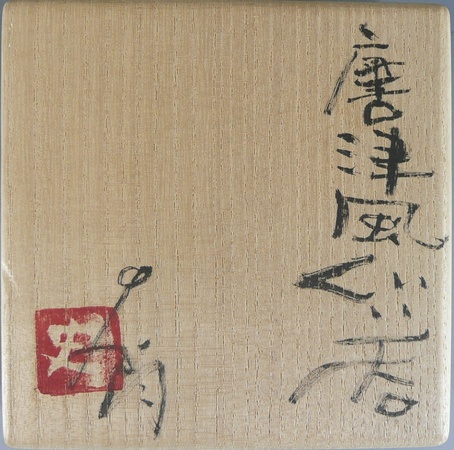 唐津風ぐい呑